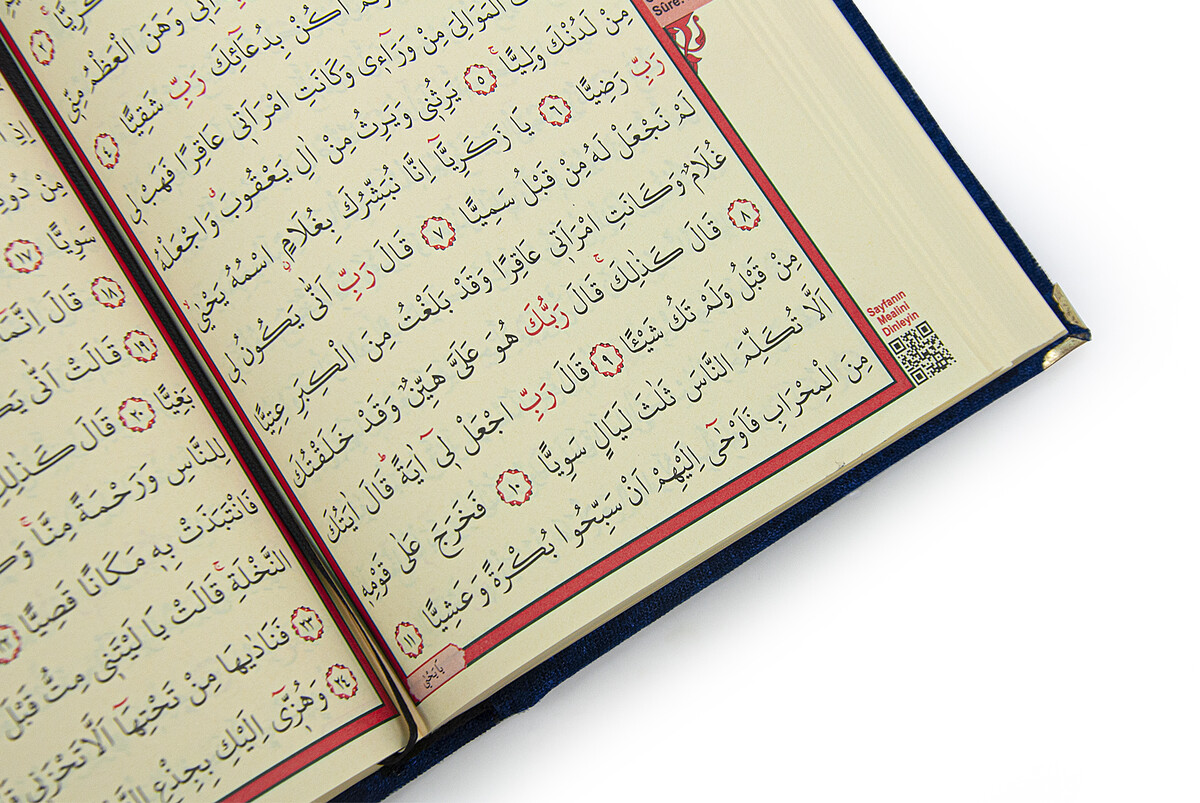 Sûre:
٢
اِنّٖى وَهَنَ الْعَظْمُ مِنّٖى
اَكُنْ بِدُعَٓائِكَ رَبِّ شَقِيًّا ٤
الْمَوَالِىَ مِنْ وَرَٓاءٖى وَكَانَتِ امْرَاَتٖى عَاقِرًا فَهَبْ لٖى
مِنْ لَدُنْكَ وَلِيًّاۚ ٥ يَرِثُنٖى وَيَرِثُ مِنْ اٰلِ يَعْقُوبَۗ وَاجْعَلْهُ
رَبِّ رَضِيًّا ٦ يَا زَكَرِيَّٓا اِنَّا نُبَشِّرُكَ بِغُلَامٍۨ اسْمُهُ يَحْيٰىۙ
لَمْ نَجْعَلْ لَهُ مِنْ قَبْلُ سَمِيًّا ٧ قَالَ رَبِّ اَنّٰى يَكُونُ لٖى
غُلَامٌ وَكَانَتِ امْرَاَتٖى عَاقِرًا وَقَدْ بَلَغْتُ مِنَ الْكِبَرِ عِتِيًّا
٨ قَالَ كَذٰلِكَۚ قَالَ رَبُّكَ هُوَ عَلَىَّ هَيِّنٌ وَقَدْ خَلَقْتُكَ
مِنْ قَبْلُ وَلَمْ تَكُ شَيْـًٔا ٩ قَالَ رَبِّ اجْعَلْ لٖٓى اٰيَةًؕ قَالَ اٰيَتُكَ
اَلَّا تُكَلِّمَ النَّاسَ ثَلٰثَ لَيَالٍ سَوِيًّا ١٠ فَخَرَجَ عَلٰى قَوْمِهٖ
مِنَ الْمِحْرَابِ فَاَوْحٰٓى اِلَيْهِمْ اَنْ سَبِّحُوا بُكْرَةً وَعَشِيًّا ١١
يَا يَحْيٰى
Sayfanın
Mealini
Dinleyin
مِنْ
سَوِيًّا ١٧
١٨ قَالَ اِنَّمَا
١٩ قَالَتْ اَنّٰى
بَغِيًّا ٢٠ قَالَ كَذٰلِكِ
لِلنَّاسِ وَرَحْمَةً مِنَّاۚ
فَانْتَبَذَتْ بِهٖ مَكَانًا قَصِيًّا ٢٢
النَّخْلَةِۚ قَالَتْ يَا لَيْتَنٖى مِتُّ قَبْلَ
٢٣ فَنَادٰيهَا مِنْ تَحْتِهَٓا اَلَّا تَحْزَنٖى
٢٤ وَهُزّٖٓى اِلَيْكِ بِجِذْعِ